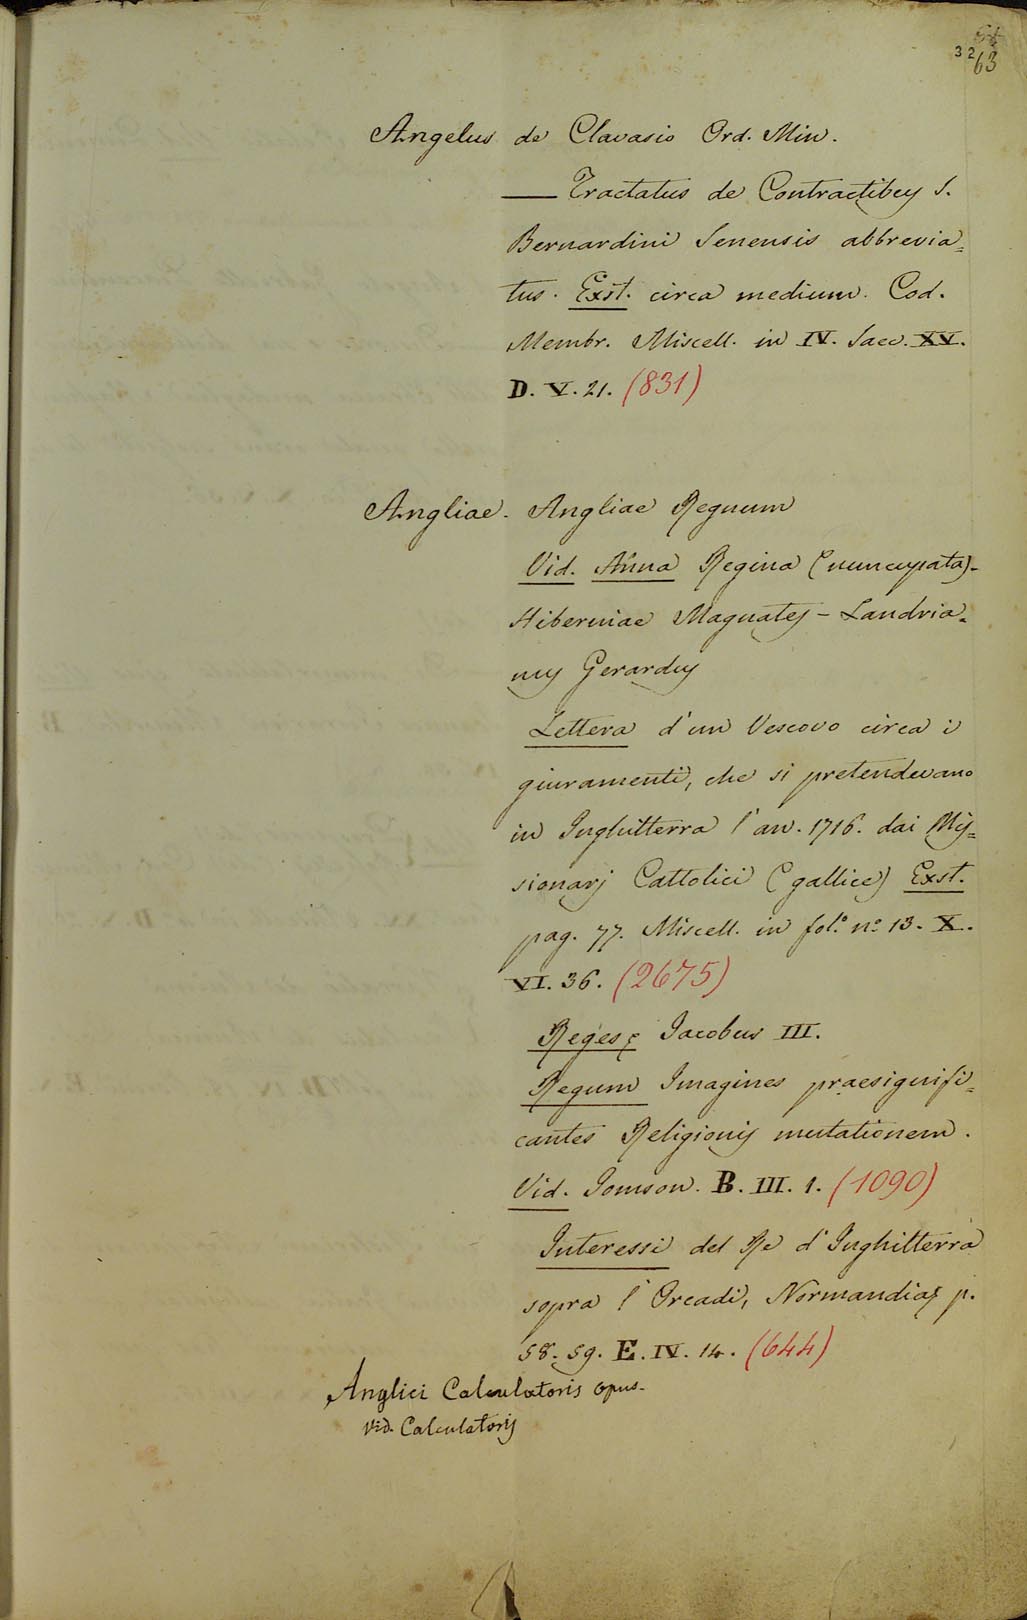 32
63
Angelus de Clavasio Ord. Min.
— Tractatus de Contractibus S.
Bernardini Senensis abbrevia=
tus. Exst. circa medium. Cod.
Membr. Miscell. in IV. Saec. XV.
D. V. 21. (831)
Angliae. Angliae Regnum
Vid. Anna Regina (nuncupata)-
Hiberniae Magnates - Landria=
nus Gerardus
Lettera d'un Vescovo circa i
giuramenti, che si pretendevano
in Inghilterra l'an. 1716. dai Mis=
sionarj Cattolici (gallice) Exst.
pag. 77. Miscell. in fol.º nº 13. X.
VI. 36. (2675)
Reges; Jacobus III.
Regum Imagines praesignifi=
cantes Religionis mutationem.
Vid. Jomson. B. III. 1. (1090)
Interessi del Re d'Inghilterra
sopra l'Orcadi, Normandia; p.
58. 59. E. IV. 14. (644)
Anglici Calculatoris opus.
vid. Calculatoris